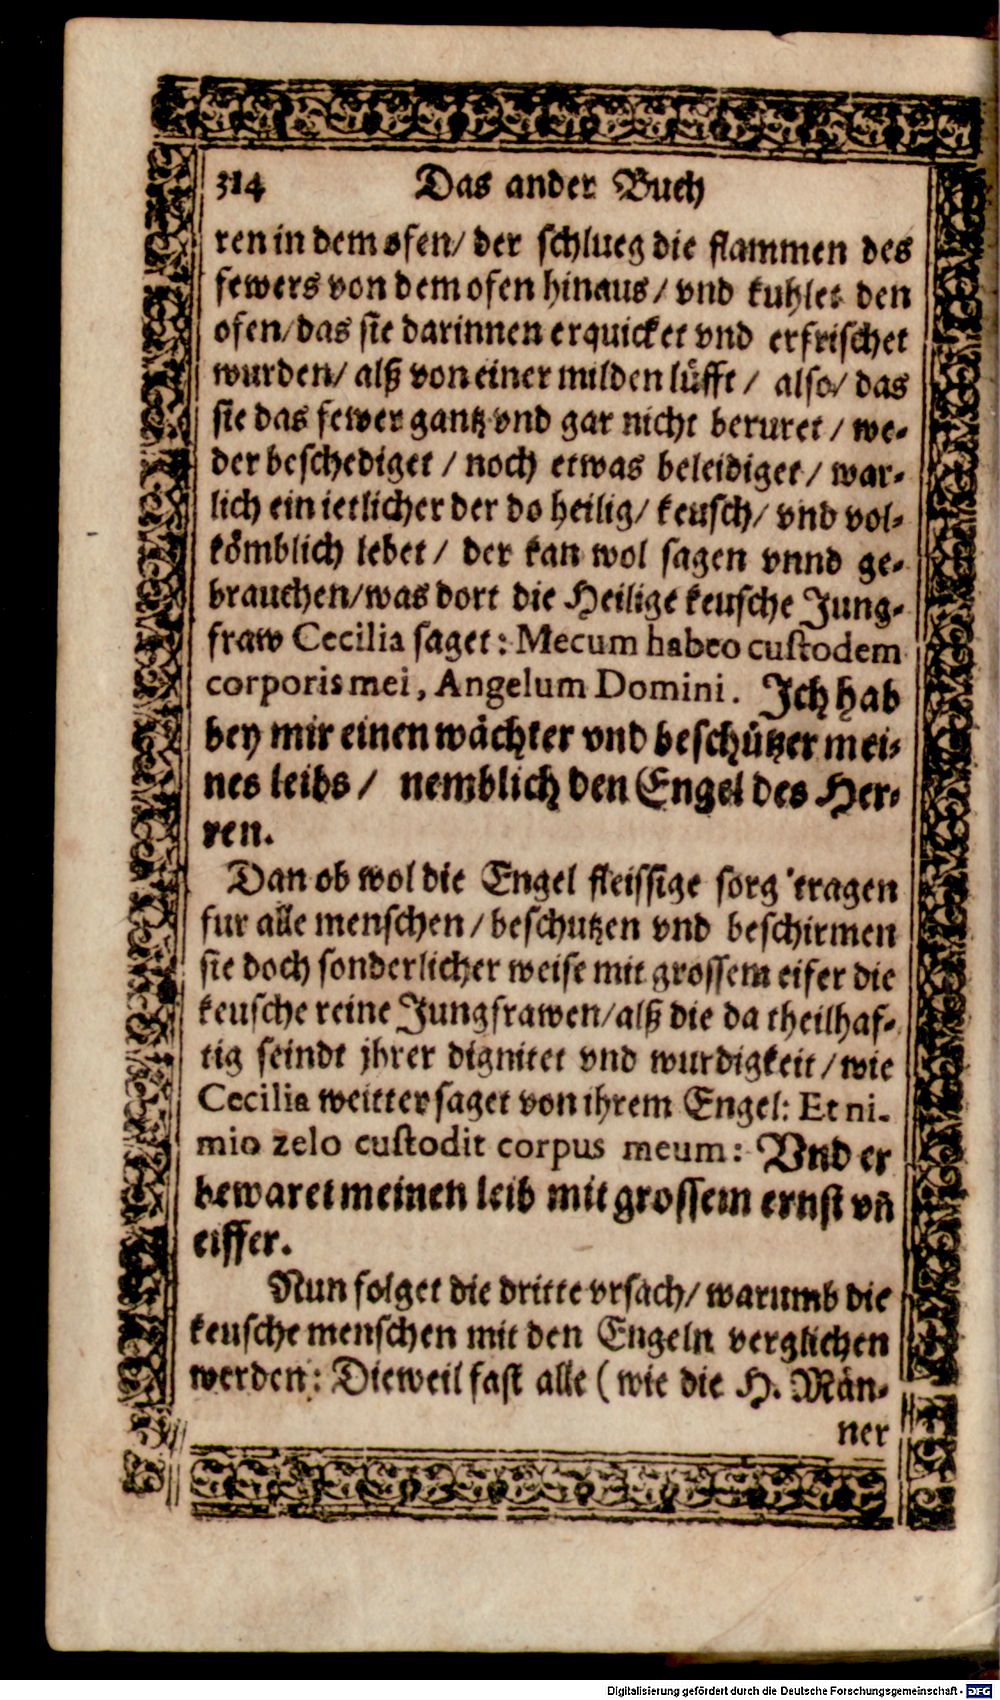 314 Das ander Buch
ren in dem ofen/ der schlueg die flammen des
fewers von dem ofen hinaus/ vnd kuhlet den
ofen/das sie darinnen erquicket vnd erfrischet
wurden/ alß von einer milden lüfft / also/ das
sie das fewer gantz vnd gar nicht beruret / we-
der beschediget / noch etwas beleidiget / war-
lich ein ietlicher der do heilig/ keusch/ vnd vol-
kömblich lebet / der kan wol sagen vnnd ge-
brauchen/was dort die Heilige keusche Jung-
fraw Cecilia saget : Mecum habeo custodem
corporis mei, Angelum Domini. Ich hab
bey mir einen wächter vnd beschützer mei-
nes leibs / nemblich den Engel des Her-
ren.
Dan ob wol die Engel fleissige sorg tragen
fur alle menschen / beschutzen vnd beschirmen
sie doch sonderlicher weise mit grossem eifer die
keusche reine Jungfrawen/alß die da theilhaf-
tig seindt jhrer dignitet vnd wurdigkeit / wie
Cecilia weitter saget von ihrem Engel: Et ni-
mio zelo custodit corpus meum : Vnd er
bewaret meinen leib mit grossem ernst vñ
eiffer.
Nun folget die dritte vrsach/ warumb die
keusche menschen mit den Engeln verglichen
werden: Dieweil fast alle ( wie die H. Män-
ner
Digitalisierung gefördert durch die Deutsche Forschungsgemeinschaft - DFG